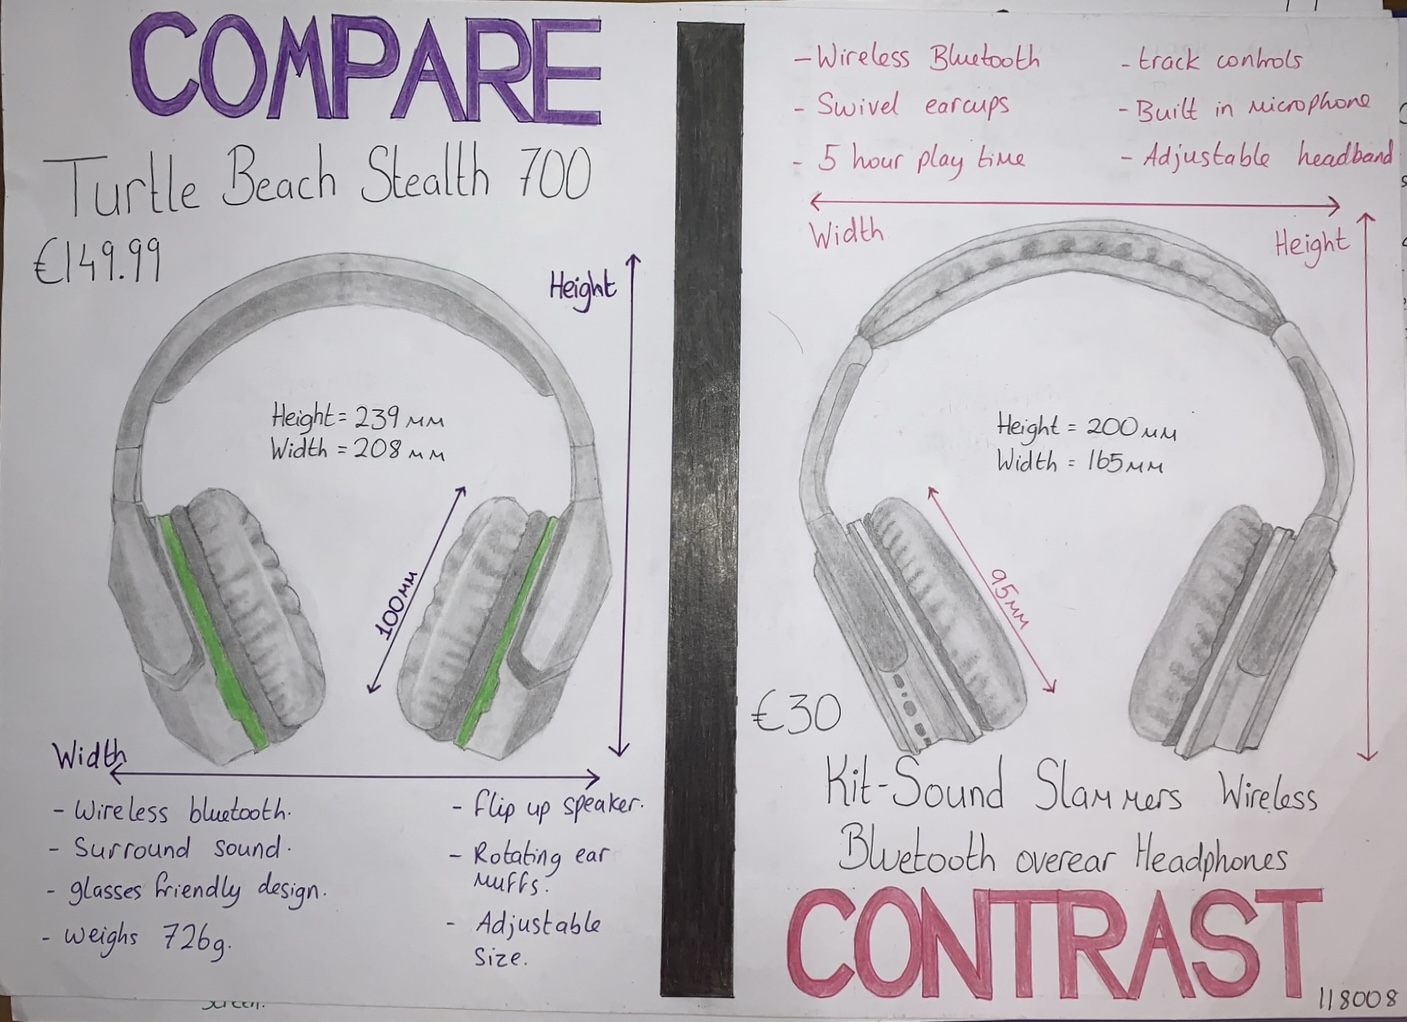 COMPARE
Turtle Beach Stealth 700
€149.99
Height
Height = 239 mm
Width = 208 mm
100mm
Width
- Wireless bluetooth.
- Surround sound.
- glasses friendly design.
- Weighs 726g.
- flip up speaker.
- Rotating ear
muffs.
- Adjustable
Size.
screen.
- Wireless Bluetooth
- Swivel earcups
- 5 hour play time
- track controls
- Built in microphone
- Adjustable headband
Width
Height
Height = 200mm
Width = 165mm
95mm
€30
Kit-Sound Slammers Wireless
Bluetooth overear Headphones
CONTRAST
118008